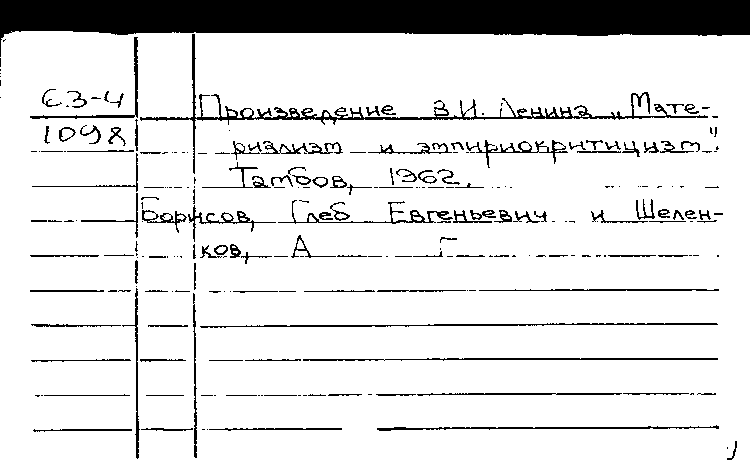 63-4 Произведение В.И. Ленина „Мате-
1098 риализм и эмпириокритицизм".
Тамбов, 1962.
Борисов, Глеб Евгеньевич и Шелен-
ков, А Г